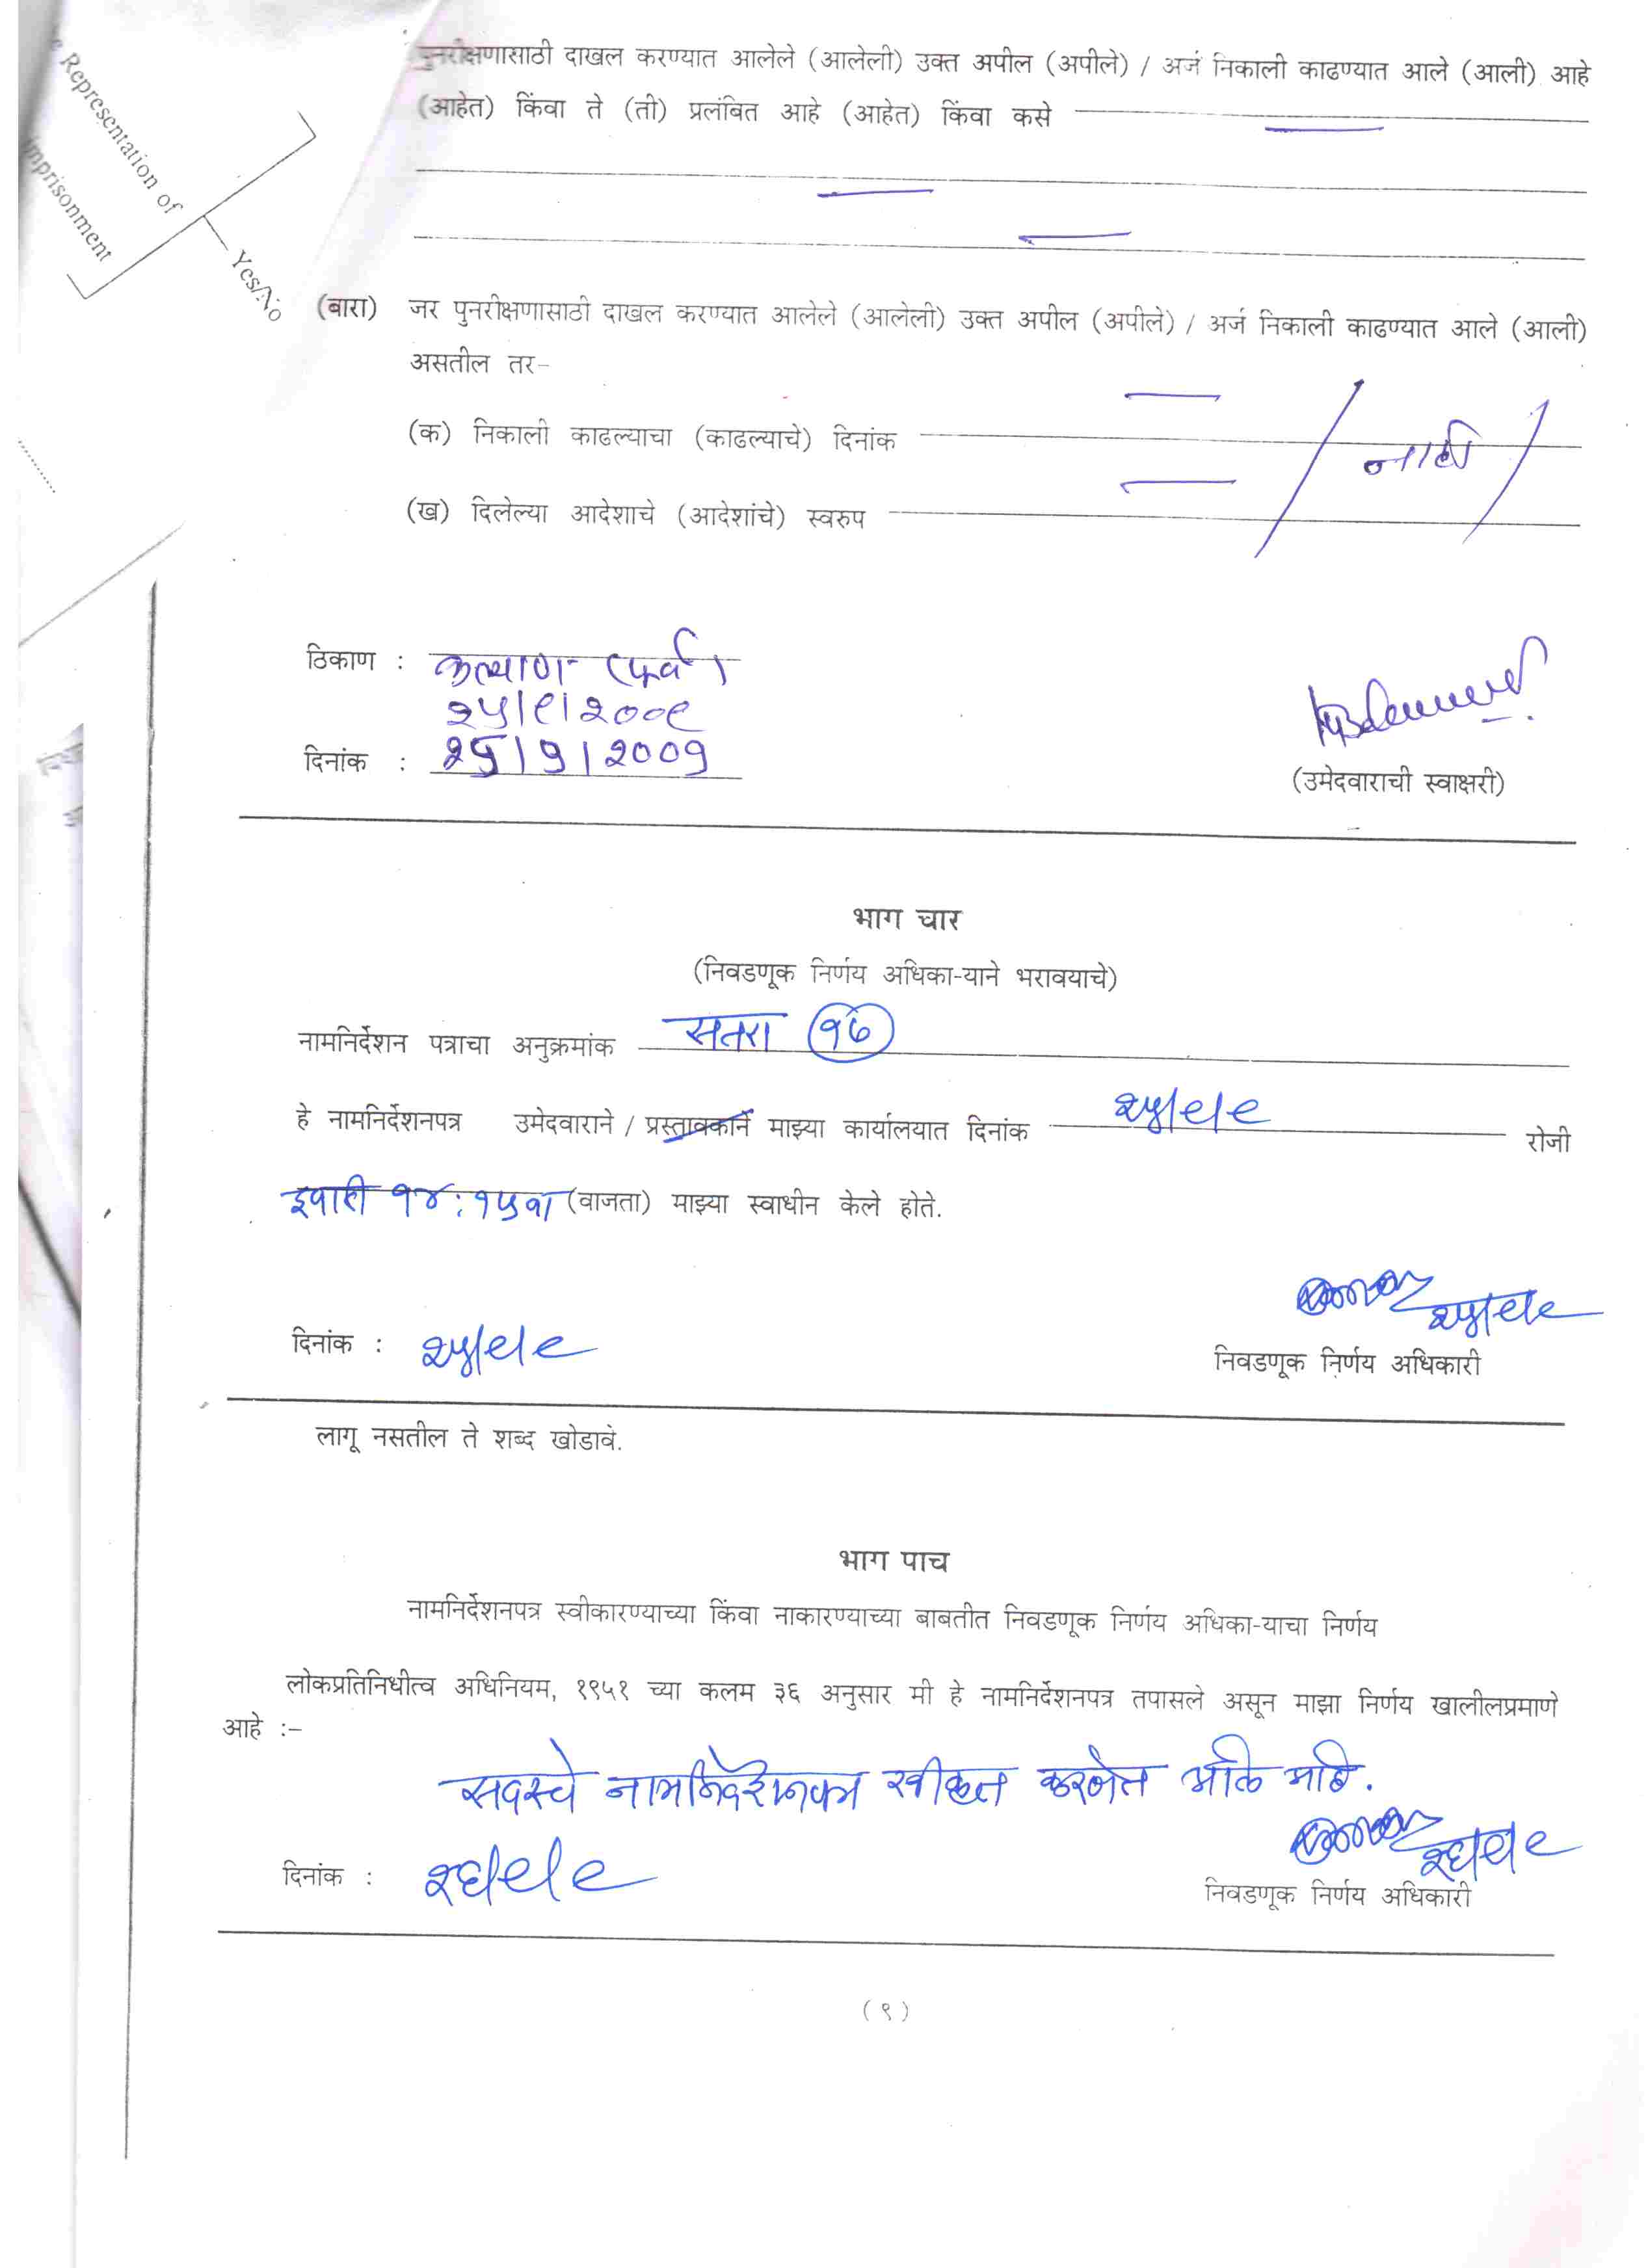 e Representation of
mprisonment
Yes/No
पुनरीक्षणासाठी दाखल करण्यात आलेले (आलेली) उक्त अपील (अपीले) / अर्ज निकाली काढण्यात आले (आली) आहे
(आहेत) किंवा ते (ती) प्रलंबित आहे (आहेत) किंवा कसे
(बारा) जर पुनरीक्षणासाठी दाखल करण्यात आलेले (आलेली) उक्त अपील (अपीले) / अर्ज निकाली काढण्यात आले (आली)
असतील तर-
(क) निकाली काढल्याचा (काढल्याचे) दिनांक
नाही
(ख) दिलेल्या आदेशाचे (आदेशांचे) स्वरुप
ठिकाण : कल्याण (पूर्व)
२५/९/२००९
दिनांक : २५/9/२००9
(उमेदवाराची स्वाक्षरी)
भाग चार
(निवडणूक निर्णय अधिका-याने भरावयाचे)
नामनिर्देशन पत्राचा अनुक्रमांक सतरा १७
हे नामनिर्देशनपत्र उमेदवाराने / प्रस्तावकाने माझ्या कार्यालयात दिनांक २५/९/९ रोजी
दुपारी १४:१५वा (वाजता) माझ्या स्वाधीन केले होते.
२५/९/९
दिनांक : २५/९/९
निवडणूक निर्णय अधिकारी
लागू नसतील ते शब्द खोडावे.
भाग पाच
नामनिर्देशनपत्र स्वीकारण्याच्या किंवा नाकारण्याच्या बाबतीत निवडणूक निर्णय अधिका-याचा निर्णय
लोकप्रतिनिधीत्व अधिनियम, १९५१ च्या कलम ३६ अनुसार मी हे नामनिर्देशनपत्र तपासले असून माझा निर्णय खालीलप्रमाणे
आहे :-
सदरचे नामनिर्देशनपत्र स्वीकृत करणेत आले आहे.
दिनांक : २६/९/९
२६/९/९
निवडणूक निर्णय अधिकारी
(९)